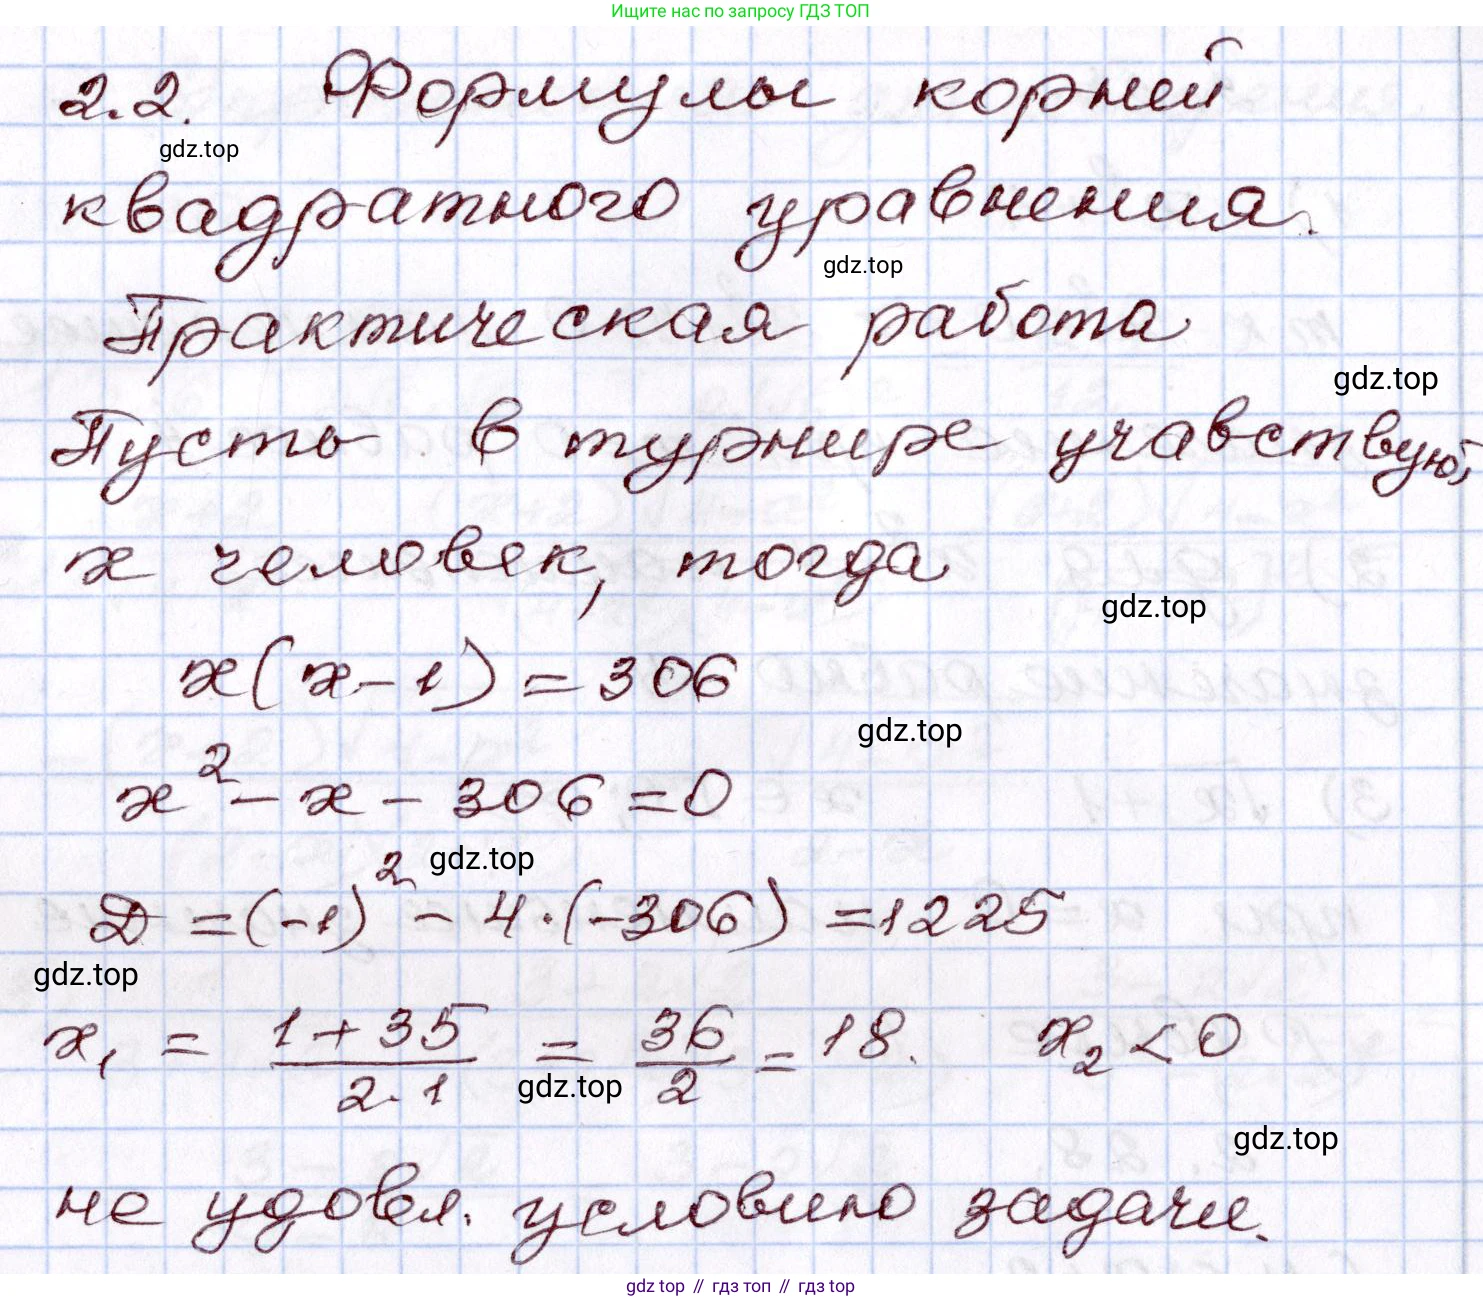 Ищите нас по запросу ГДЗ ТОП
2.2. Формулы корней
gdz.top
квадратного уравнения.
gdz.top
Практическая работа
gdz.top
Пусть в турнире учавствуют
x человек, тогда
gdz.top
x(x-1) = 306
gdz.top
x² - x - 306 = 0
gdz.top
D = (-1)² - 4·(-306) = 1225
gdz.top
x₁ = (1+35)/(2·1) = 36/2 = 18. x₂ < 0
gdz.top
gdz.top
не удовл. условию задачи.
gdz top // гдз топ // гдз top